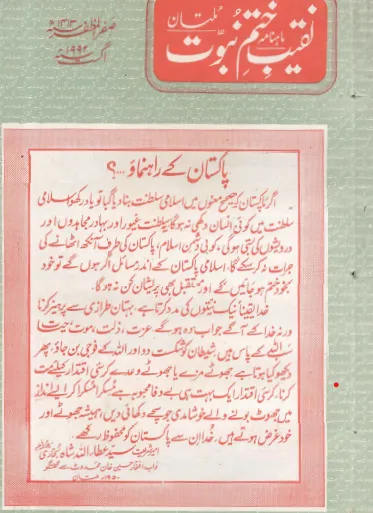 ماہنامہ
نقیب ختم نبوت
ملتان
صفر المظفر ۱۴۱۳ھ
اگست ۱۹۹۲ء
پاکستان کے راہنماؤ ...؟
اگر پاکستان کو صحیح معنوں میں اسلامی سلطنت بنا دیا گیا تو یاد رکھو اسلامی
سلطنت میں کوئی انسان دکھی نہ ہوگا یہ سلطنت غیور اور بہادر مجاہدوں اور
درویشوں کی بستی ہوگی، کوئی دشمن اسلام، پاکستان کی طرف آنکھ اٹھانے کی
جرات نہ کر سکے گا، اسلامی پاکستان کے اندر مسائل اگر ہوں گے تو خود
بخود ختم ہو جائیں گے اور مستقبل بھی پریشان کن نہ ہوگا۔
خدا یقیناً نیک نیتوں کی مدد کرتا ہے، بہتان طرازی سے پرہیز کرنا
ورنہ خدا کے آگے جواب دہ ہوگے عزت، ذلت، موت، حیات
سب اللہ کے پاس ہیں، شیطان کو شکست دو اور اللہ کے فوجی بن جاؤ، پھر
دیکھو کیا ہوتا ہے جھوٹے مزے یا جھوٹے وعدے کرسی اقتدار کیلئے مت
کرنا، کرسی اقتدار ایک بہت ہی بے وفا محبوبہ ہے مسکرا مسکرا کر ایسے انداز
میں جھوٹ بولنے والے خوشامدی جو سبھے دکھائی دیں، ہمیشہ جھوٹے اور
خود غرض ہوتے ہیں۔ خدا ان سے پاکستان کو محفوظ رکھے۔
امیر شریعت سید عطاء اللہ شاہ بخاری
نواب افتخار حسین خان ممدوٹ سے گفتگو
۱۹۵۰ء ملتان